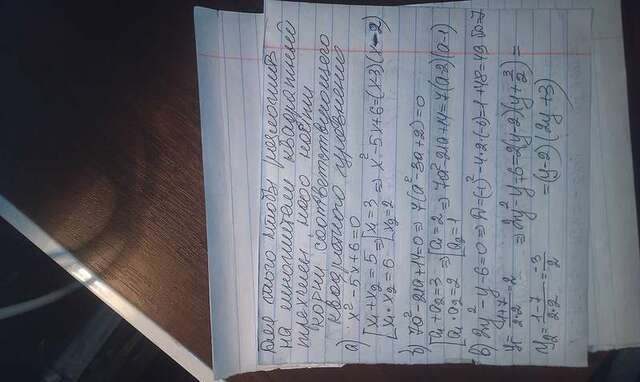 Для того чтобы разложить
на множители квадратный
трехчлен надо найти
корни соответственного
квадратного уравнения
а) x²-5x+6=0
[x₁+x₂=5 ⇒ [x₁=3 ⇒ x²-5x+6=(x-3)(x-2)
[x₁·x₂=6 [x₂=2
б) 7a²-21a+14=0 ⇒ 7(a²-3a+2)=0
[a₁+a₂=3 ⇒ [a₁=2 ⇒ 7a²-21a+14=7(a-2)(a-1)
[a₁·a₂=2 [a₂=1
в) 2y²-y-6=0 ⇒ D=(-1)²-4·2·(-6)=1+48=49 √D=7
y₁=(1+7)/(2·2)=2 ⇒ 2y²-y-6=2(y-2)(y+3/2)=
y₂=(1-7)/(2·2)=-3/2 =(y-2)(2y+3)